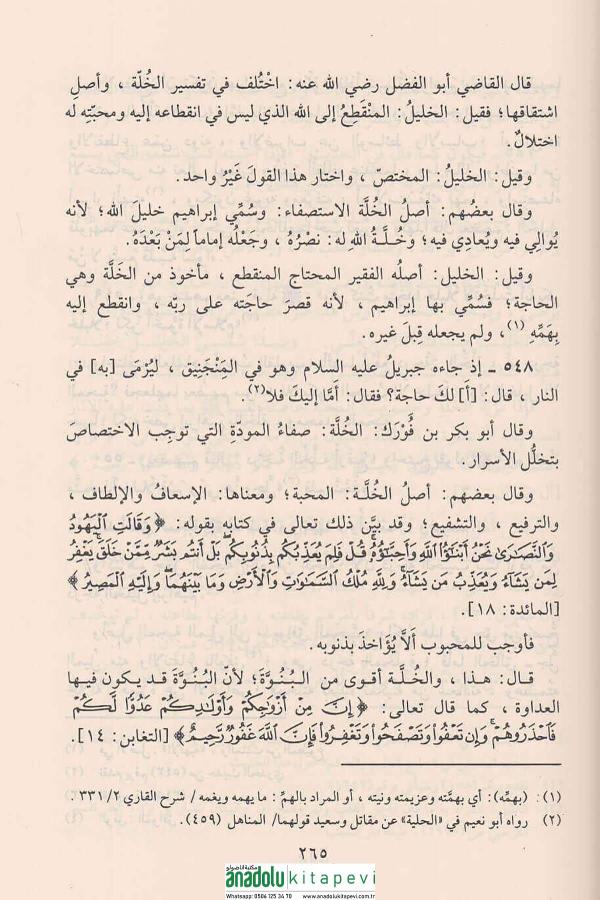 قال القاضي أبو الفضل رضي الله عنه: اخْتُلف في تفسير الخُلّة ، وأصلِ
اشتقاقها؛ فقيل: الخليلُ: المنْقَطِعُ إلى الله الذي ليس في انقطاعه إليه ومحبّتِه له
اختلالٌ.
وقيل: الخليلُ: المختصّ ، واختار هذا القولَ غَيْرُ واحد.
وقال بعضُهم: أصلُ الخُلَّة الاستصفاء: وسُمِّي إبراهيم خليلَ الله؛ لأنه
يُوالي فيه ويُعادي فيه؛ وخُلَّـةُ الله له: نصْرُهُ ، وجَعْلُه إماماً لِمَنْ بَعْدَهُ.
وقيل: الخليل: أصلُه الفقير المحتاج المنقطع ، مأخوذ من الخَلَّة وهي
الحاجة؛ فسُمِّي بها إبراهيم ، لأنه قصرَ حاجتَه على ربّه ، وانقطع إليه
بِهَمِّهِ (١)، ولم يجعله قِبلَ غيره.
٥٤٨ ـ إذ جاءه جبريلُ عليه السلام وهو في المَنْجَنِيق ، ليُرْمَى [به] في
النار ، قال: [أ] لكَ حاجة؟ فقال: أمَّا إليكَ فلا(٢).
وقال أبو بكر بن فُوْرَك: الخُلّة: صفاءُ المودّةِ التي توجِب الاختصاصَ
بتخلُّلِ الأسرار.
وقال بعضهم: أصلُ الخُلَّـة: المحبة؛ ومعناها: الإسعافُ والإلطاف ،
والترفيع ، والتشفيع؛ وقد بيَّن ذلك تعالى في كتابه بقوله: ﴿ وَقَالَتِ الْيَهُودُ
وَالنَّصَارَىٰ نَحْنُ أَبْنَاؤُا اللَّهِ وَأَحِبَّاؤُهُ قُلْ فَلِمَ يُعَذِّبُكُم بِذُنُوبِكُم بَلْ أَنتُم بَشَرٌ مِّمَّنْ خَلَقَ يَغْفِرُ
لِمَن يَشَاءُ وَيُعَذِّبُ مَن يَشَاءُ وَلِلَّهِ مُلْكُ السَّمَاوَاتِ وَالْأَرْضِ وَمَا بَيْنَهُمَا وَإِلَيْهِ الْمَصِيرُ ﴾
[المائدة: ١٨].
فأوجب للمحبوب ألاَّ يُؤَاخذَ بذنوبه.
قـال: هـذا ، والخُلَّـة أقوى مـن الـبُنُوَّة؛ لأنّ البُنُوَّةَ قـد يكـون فيهـا
العداوة ، كما قال تعالى: ﴿ إِنَّ مِنْ أَزْوَاجِكُمْ وَأَوْلَادِكُمْ عَدُوًّا لَّكُمْ
فَاحْذَرُوهُمْ وَإِن تَعْفُوا وَتَصْفَحُوا وَتَغْفِرُوا فَإِنَّ اللَّهَ غَفُورٌ رَّحِيمٌ ﴾ [التغابن: ١٤].
(١) (بهمّه): أي بهمَّته وعزيمته ونيته ، أو المراد بالهمّ: ما يهمه ويغمه / شرح القاري ٣٣١/٢ .
(٢) رواه أبو نعيم في «الحلية» عن مقاتل وسعيد قولهما/ المناهل (٤٥٩).
٢٦٥
anadolukitapevi
Whatsapp: 0506 125 34 70 www.anadolukitapevi.com.tr